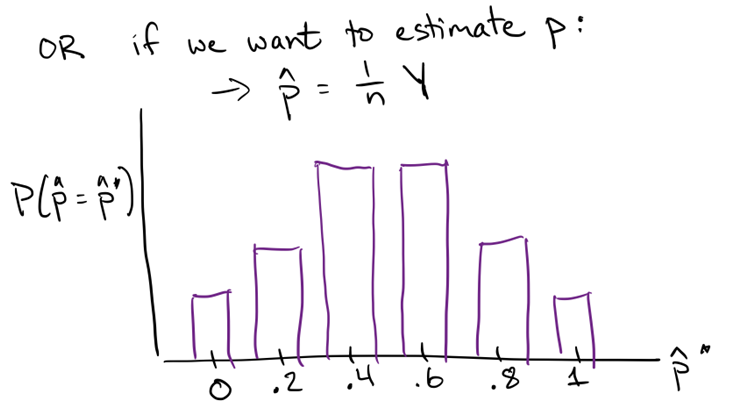 OR if we want to estimate p:
→ p̂ = 1/n Y
P(p̂ = p̂*)
0 .2 .4 .6 .8 1 p̂*